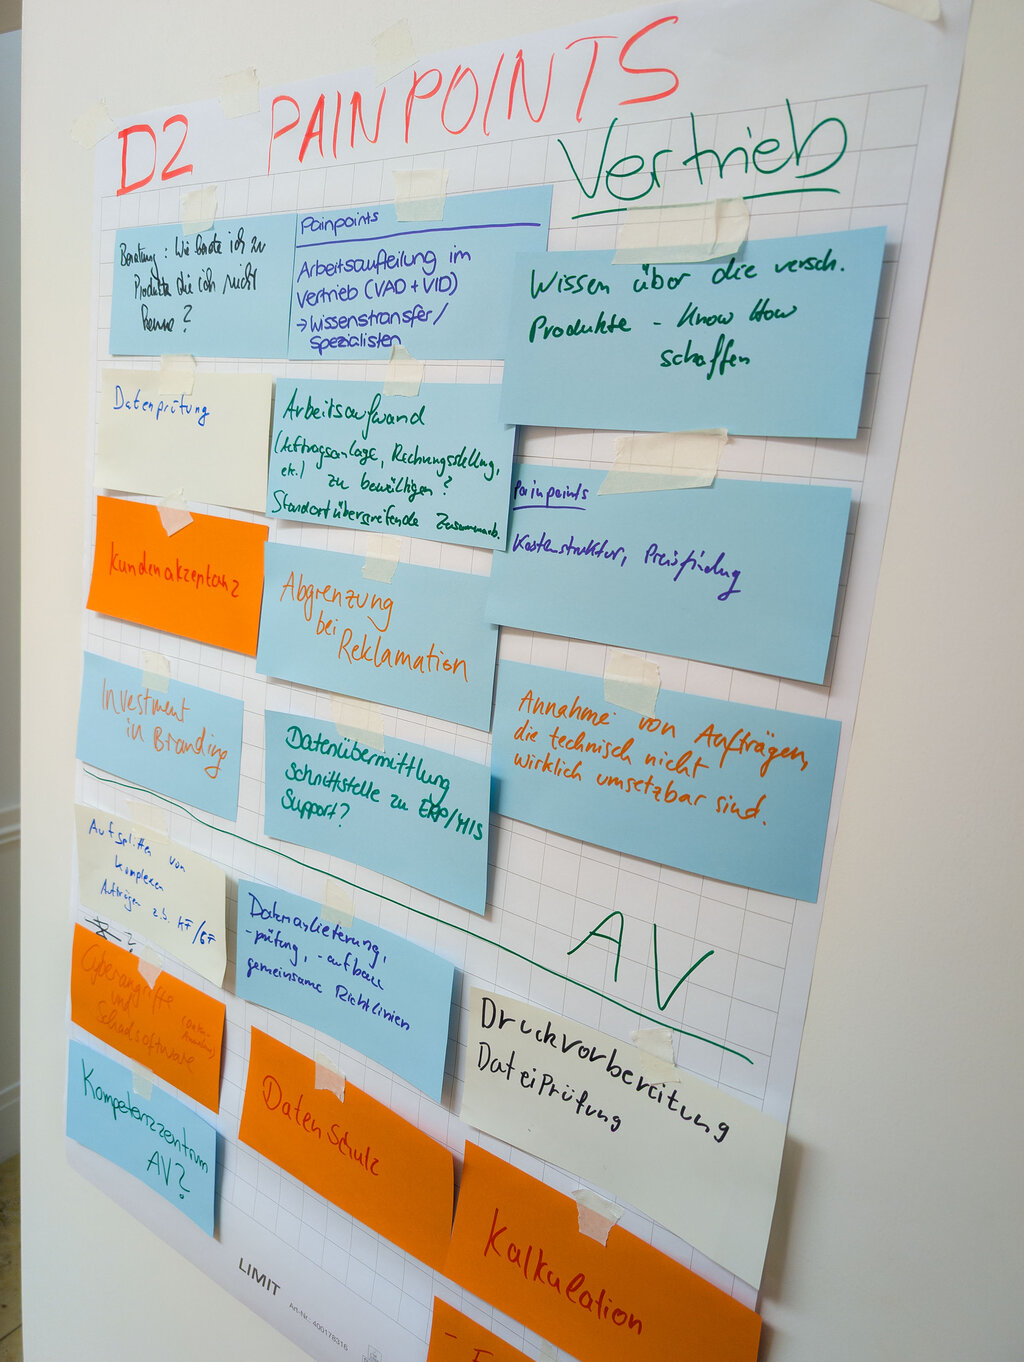 D2 PAINPOINTS
Vertrieb
Beratung: Wie berate ich zu
Produkte die ich nicht
kenne?
Painpoints
Arbeitsaufteilung im
Vertrieb (VAD + VID)
→ Wissenstransfer/
Spezialisten
Wissen über die versch.
Produkte - Know How
schaffen
Datenprüfung
Arbeitsaufwand
(Auftragsanlage, Rechnungsstellung,
etc.) zu bewältigen?
Standortübergreifende Zusammenarb.
Painpoints
Kostenstruktur, Preisfindung
Kundenakzeptanz
Abgrenzung
bei
Reklamation
Investment
in Branding
Datenübermittlung
Schnittstelle zu ERP/MIS
Support?
Annahme von Aufträgen,
die technisch nicht
wirklich umsetzbar sind.
AV
Aufsplitten von
komplexen
Aufträgen z.B. KF/GF
Datenanlieferung,
-prüfung, -aufbau
gemeinsame Richtlinien
Druckvorbereitung
Dateiprüfung
Cyberangriffe
und
Schadsoftware
Kompetenzzentrum
AV?
Datenschutz
Kalkulation
LIMIT
Art-Nr. 400178316